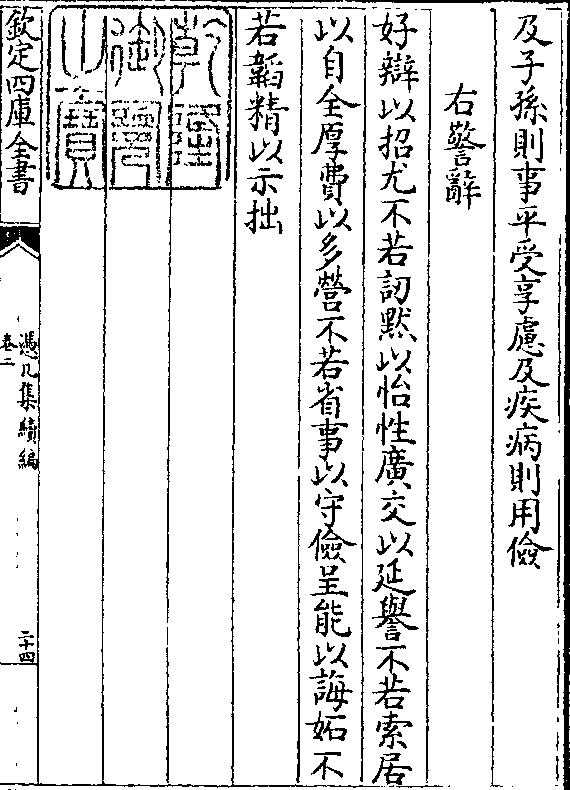 及子孫則事平受享慮及疾病則用儉
右警辭
好辯以招尤不若訒默以怡性廣交以延譽不若索居
以自全厚費以多營不若省事以守儉呈能以誨妬不
若韜精以示拙
乾隆
御覽
之寶
欽定四庫全書
憑几集續編
卷二
二十四